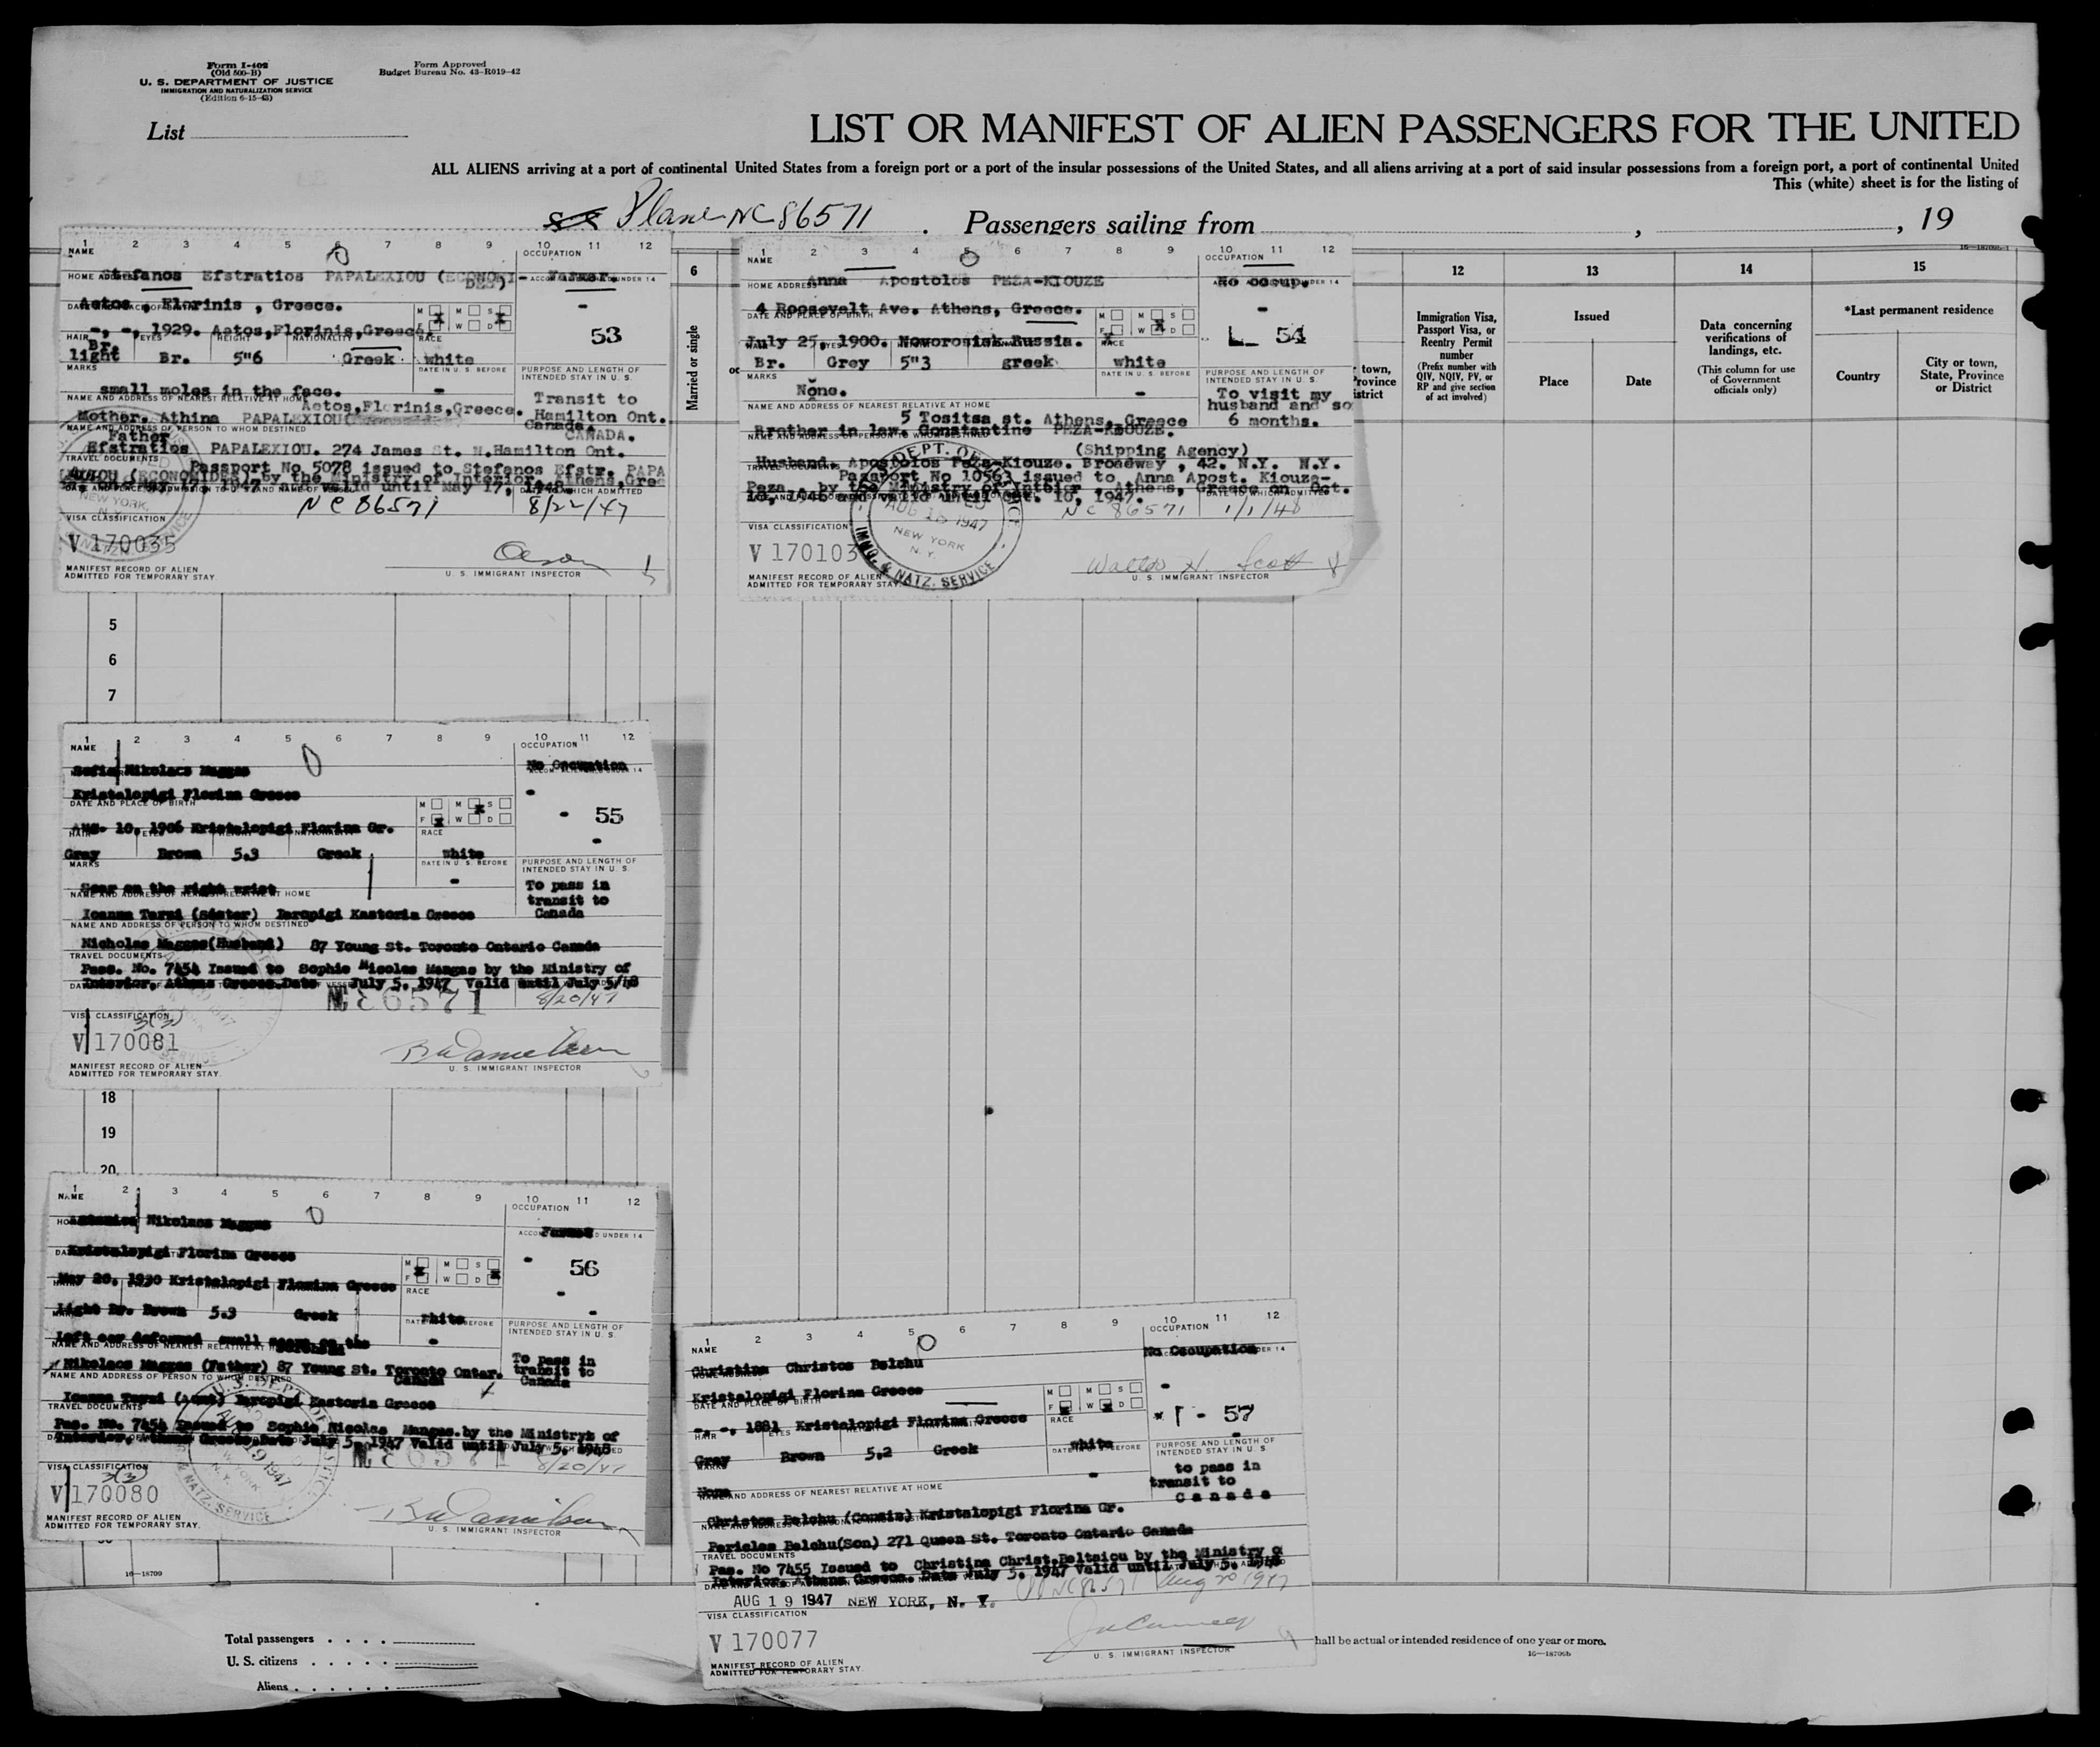 Form I-402
(Old 500-B)
U. S. DEPARTMENT OF JUSTICE
IMMIGRATION AND NATURALIZATION SERVICE
(Edition 6-15-43)
Form Approved
Budget Bureau No. 43-R019-42
List
LIST OR MANIFEST OF ALIEN PASSENGERS FOR THE UNITED
ALL ALIENS arriving at a port of continental United States from a foreign port or a port of the insular possessions of the United States, and all aliens arriving at a port of said insular possessions from a foreign port, a port of continental United
This (white) sheet is for the listing of
Plane NC 86571 . Passengers sailing from , , 19
16—18709b-1
1 2 3 4 5 6 7 8 9 10 11 12
NAME
OCCUPATION
Stefanos Efstratios PAPALEXIOU (ECONOMI-
DES)
Farmer.
HOME ADDRESS
Aetos, Florinis, Greece.
-
DATE AND PLACE OF BIRTH
M M S
F W D
-, -, 1929. Aetos, Florinis, Greece.
53
HAIR EYES HEIGHT NATIONALITY RACE
Br.
light Br. 5"6 Greek white
MARKS
DATE IN U. S. BEFORE
PURPOSE AND LENGTH OF
INTENDED STAY IN U. S.
small moles in the face.
-
Transit to
Hamilton Ont.
Canada.
CANADA.
NAME AND ADDRESS OF NEAREST RELATIVE AT HOME
Aetos, Florinis, Greece.
Mother. Athina PAPALEXIOU
NAME AND ADDRESS OF PERSON TO WHOM DESTINED
Father
Efstratios PAPALEXIOU. 274 James St. N. Hamilton Ont.
TRAVEL DOCUMENTS
Passport No 5078 issued to Stefanos Efstr. PAPA
by the Ministry of Interior, Athens, Gree
valid until May 17, 1948.
NC 86571 8/22/47
VISA CLASSIFICATION
V 170035
Olson
U. S. IMMIGRANT INSPECTOR
MANIFEST RECORD OF ALIEN
ADMITTED FOR TEMPORARY STAY.
6
Married or single
1 2 3 4 5 6 7 8 9 10 11 12
NAME
OCCUPATION
Anna Apostolos PEZA-KIOUZE
No occup.
HOME ADDRESS
4 Roosevelt Ave. Athens, Greece.
-
DATE AND PLACE OF BIRTH
M M S
F W D
July 25, 1900. Noworosisk Russia.
54
RACE
Br. Grey 5"3 greek white
MARKS
DATE IN U. S. BEFORE
PURPOSE AND LENGTH OF
INTENDED STAY IN U. S.
None.
-
To visit my
husband and so
6 months.
NAME AND ADDRESS OF NEAREST RELATIVE AT HOME
5 Tositsa st. Athens, Greece
Brother in law. Constantine PEZA-KIOUZE.
(Shipping Agency)
Husband. Apostolos Peza-Kiouze. Broadway, 42. N.Y. N.Y.
Passport No 10563 issued to Anna Apost. Kiouze-
Peza, by the Ministry of Interior, Athens, Greece on Oct.
10, 1946 and valid until Oct. 10, 1947.
NC 86571 1/1/48
VISA CLASSIFICATION
V 170103
U. S. DEPT. OF JUSTICE
AUG 18 1947
NEW YORK
N. Y.
IMMG. & NATZ. SERVICE
Walter H. Scott
U. S. IMMIGRANT INSPECTOR
MANIFEST RECORD OF ALIEN
ADMITTED FOR TEMPORARY STAY.
12
Immigration Visa,
Passport Visa, or
Reentry Permit
number
(Prefix number with
QIV, NQIV, PV, or
RP and give section
of act involved)
13
Issued
Place
Date
14
Data concerning
verifications of
landings, etc.
(This column for use
of Government
officials only)
15
*Last permanent residence
Country
City or town,
State, Province
or District
5
6
7
1 2 3 4 5 6 7 8 9 10 11 12
NAME
OCCUPATION
Sofia Nikolaos Maggas
No Occupation
Kristalopigi Florina Greece
-
DATE AND PLACE OF BIRTH
M M S
F W D
- 55
Aug. 10, 1906 Kristalopigi Florina Gr.
RACE
-
Gray Brown 5.3 Greek White
MARKS
DATE IN U. S. BEFORE
PURPOSE AND LENGTH OF
INTENDED STAY IN U. S.
Scar on the right wrist
-
To pass in
transit to
Canada
NAME AND ADDRESS OF NEAREST RELATIVE AT HOME
Ioanna Tarzi (Sister) Ieropigi Kastoria Greece
NAME AND ADDRESS OF PERSON TO WHOM DESTINED
Nicholas Maggas(Husband) 87 Young St. Toronto Ontario Canada
TRAVEL DOCUMENTS
Pass. No. 7454 Issued to Sophie Nicolas Mangas by the Ministry of
Interior, Athens Greece. Date July 5. 1947 Valid until July 5/48
NC 86571 8/20/47
VISA CLASSIFICATION
3(3)
V 170081
U. S. IMMIGRANT INSPECTOR
MANIFEST RECORD OF ALIEN
ADMITTED FOR TEMPORARY STAY.
18
19
20
1 2 3 4 5 6 7 8 9 10 11 12
NAME
OCCUPATION
Nikolaos Maggas
Farmer
Kristalopigi Florina Greece
-
M M S
F W D
56
May 20, 1930 Kristalopigi Florina Greece
RACE
-
Light Br. Brown 5.3 Greek White
PURPOSE AND LENGTH OF
INTENDED STAY IN U. S.
-
Left ear deformed small scars on the
forehead
-
To pass in
transit to
Canada
NAME AND ADDRESS OF NEAREST RELATIVE AT
Nikolaos Maggas (Father) 87 Young St. Toronto Ontar.
Canada
NAME AND ADDRESS OF PERSON TO WHOM DESTINED
Ioanna Tarzi (Aunt) Ieropigi Kastoria Greece
TRAVEL DOCUMENTS
Pas. No. 7454 Issued to Sophie Nicolas Mangas. by the Ministry of
Interior, Athens Greece. Date July 5. 1947 Valid until July 5. 1948
NC 86571 8/20/47
VISA CLASSIFICATION
3(3)
V 170080
U. S. IMMIGRANT INSPECTOR
MANIFEST RECORD OF ALIEN
ADMITTED FOR TEMPORARY STAY.
16-18709
1 2 3 4 5 6 7 8 9 10 11 12
NAME
OCCUPATION
Christina Christos Belchu
No Occupation
Kristalopigi Florina Greece
-
DATE AND PLACE OF BIRTH
M M S
F W D
57
-. -, 1881 Kristalopigi Florina Greece
RACE
-
Gray Brown 5.2 Greek White
PURPOSE AND LENGTH OF
INTENDED STAY IN U. S.
None
-
to pass in
transit to
Canada
NAME AND ADDRESS OF NEAREST RELATIVE AT HOME
Christos Belchu (Cousin) Kristalopigi Florina Gr.
Pericles Belchu(Son) 271 Queen St. Toronto Ontario Canada
TRAVEL DOCUMENTS
Pas. No 7455 Issued to Christina Christ. Beltsiou by the Ministry o
Interior, Athens Greece. Date July 5. 1947 Valid until July 5. 1948
AUG 19 1947 NEW YORK, N. Y. Aug 20 1947
VISA CLASSIFICATION
V 170077
U. S. IMMIGRANT INSPECTOR
MANIFEST RECORD OF ALIEN
ADMITTED FOR TEMPORARY STAY.
Total passengers
U. S. citizens
Aliens
hall be actual or intended residence of one year or more.
16—18709b